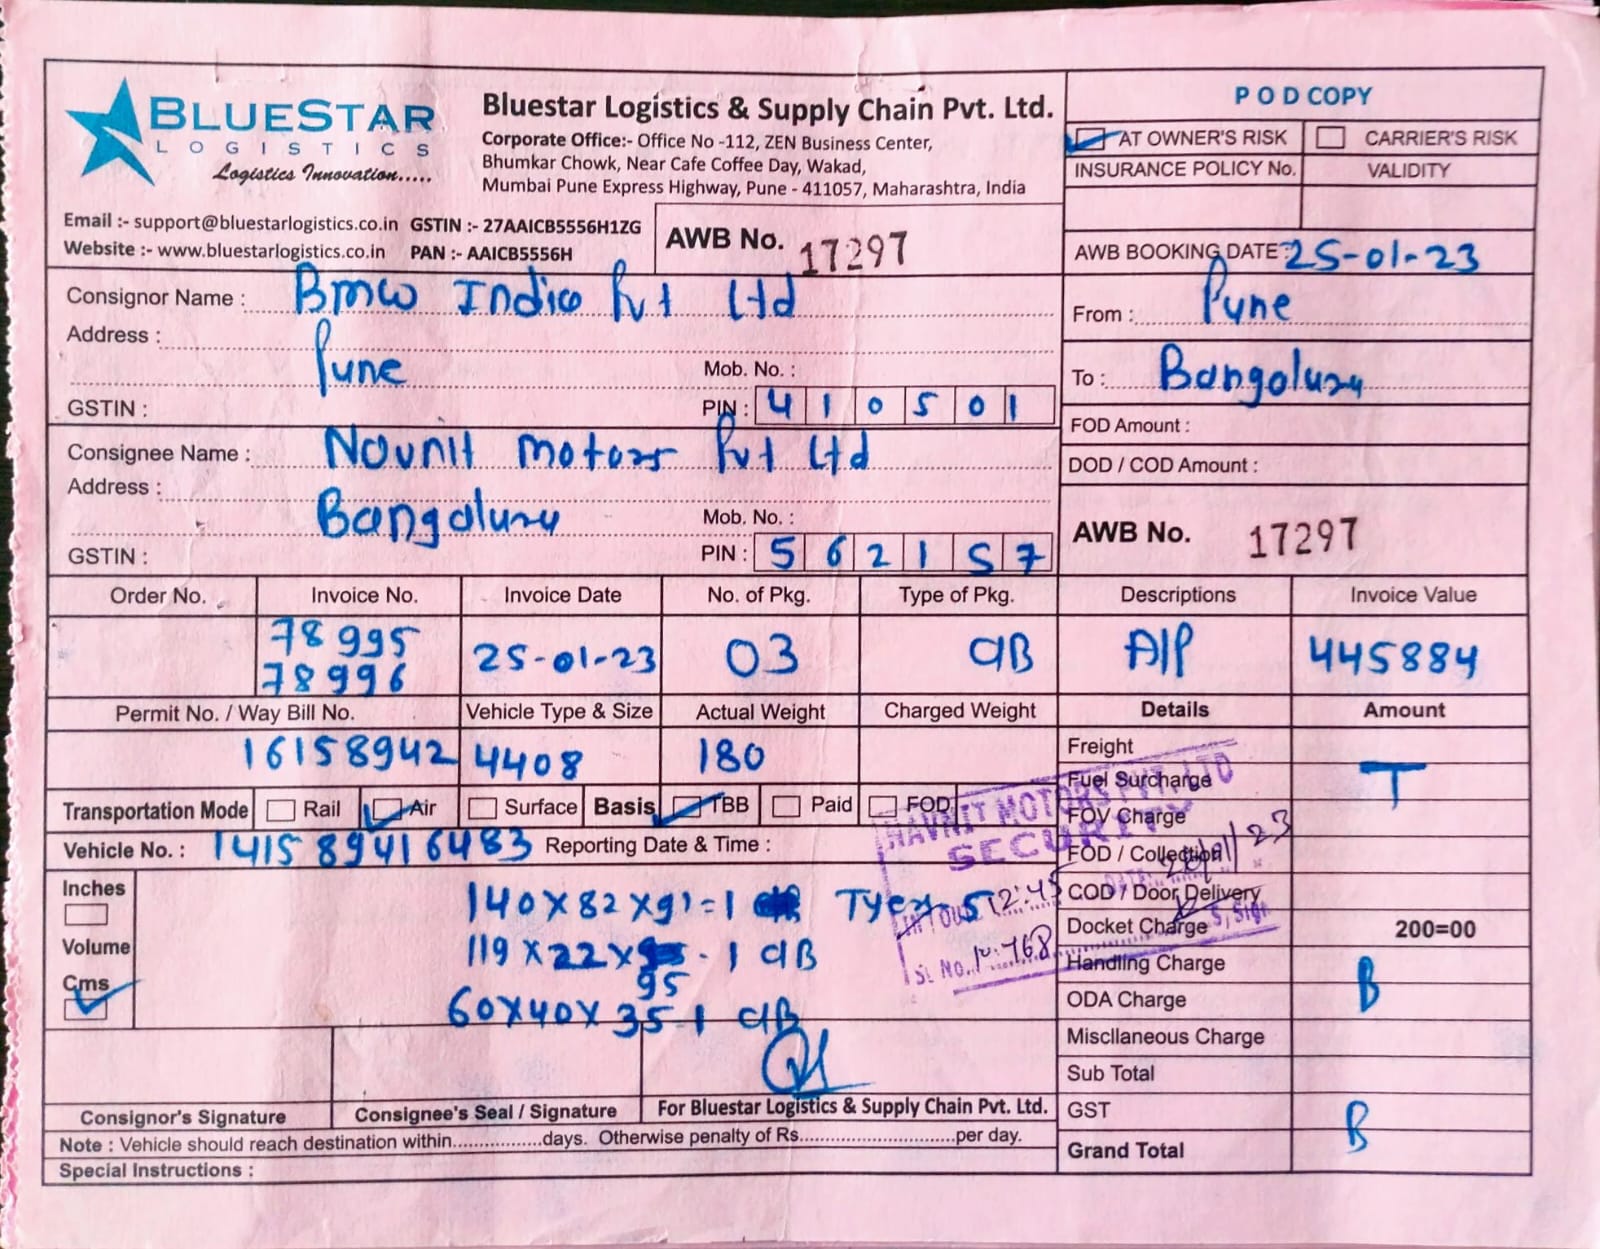 BLUESTAR
LOGISTICS
Logistics Innovation.....
Bluestar Logistics & Supply Chain Pvt. Ltd.
Corporate Office:- Office No -112, ZEN Business Center,
Bhumkar Chowk, Near Cafe Coffee Day, Wakad,
Mumbai Pune Express Highway, Pune - 411057, Maharashtra, India
Email :- support@bluestarlogistics.co.in GSTIN :- 27AAICB5556H1ZG
Website :- www.bluestarlogistics.co.in PAN :- AAICB5556H
AWB No. 17297
P O D COPY
AT OWNER'S RISK CARRIER'S RISK
INSURANCE POLICY No. VALIDITY
AWB BOOKING DATE : 25-01-23
Consignor Name : BMW India Pvt Ltd
Address :
Pune
Mob. No. :
GSTIN : PIN : 410501
From : Pune
To : Bangalury
FOD Amount :
DOD / COD Amount :
Consignee Name : Navnit Motors Pvt Ltd
Address :
Bangalury
Mob. No. :
GSTIN : PIN : 562157
AWB No. 17297
Order No. Invoice No. Invoice Date No. of Pkg. Type of Pkg. Descriptions Invoice Value
78995
78996 25-01-23 03 CIB A/P 445884
Permit No. / Way Bill No. Vehicle Type & Size Actual Weight Charged Weight Details Amount
16158942 4408 180
Transportation Mode Rail Air Surface Basis TBB Paid FOD
Vehicle No. : 141589416483 Reporting Date & Time :
Inches
Volume
Cms
140x82x91=1 Tyer-5
119x22x95-1 CIB
60x40x35-1 CIB
NAVNIT MOTORS PVT. LTD
SECURITY
12:45
SL NO. 768
Freight
Fuel Surcharge T
FOV Charge
FOD / Collection
COD / Door Delivery
Docket Charge 200=00
Handling Charge
ODA Charge B
Miscllaneous Charge
Sub Total
GST B
Grand Total
Consignor's Signature Consignee's Seal / Signature For Bluestar Logistics & Supply Chain Pvt. Ltd.
Note : Vehicle should reach destination within.................days. Otherwise penalty of Rs..............................per day.
Special Instructions :